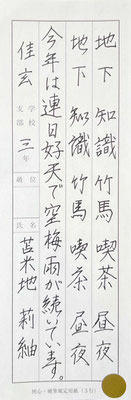 地下 知識 竹馬 喫茶 昼夜
地下 知識 竹馬 喫茶 昼夜
今年は連日好天で空梅雨が続いています。
佳玄 学校 支部 三年 級 位 氏名 苫米地 莉紬
硬筆規定用紙(3行)